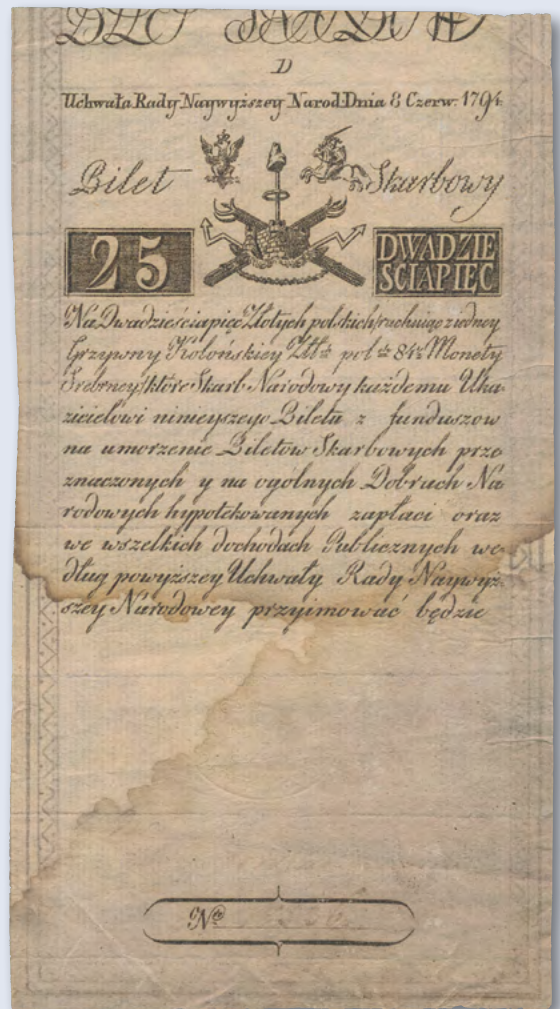 D
Uchwała Rady Naywyższey Narod: Dnia 8 Czerw: 1794.
Bilet Skarbowy
25 DWADZIE
ŚCIAPIĘĆ
Na Dwadzieściapięć Złotych polskich rachuiąc z iedney
Grzywny Kolońskiey Złt: pol: 84½ Monety
Srebrney, które Skarb Narodowy każdemu Uka-
zicielowi ninieyszego Biletu z funduszow
na umorzenie Biletow Skarbowych prze
znaczonych y na ogólnych Dobrach Na
rodowych hypotekowanych zapłaci oraz
we wszelkich dochodach Publicznych we-
dług powyższey Uchwały Rady Naywyż-
szey Narodowey przyimować będzie
Nro